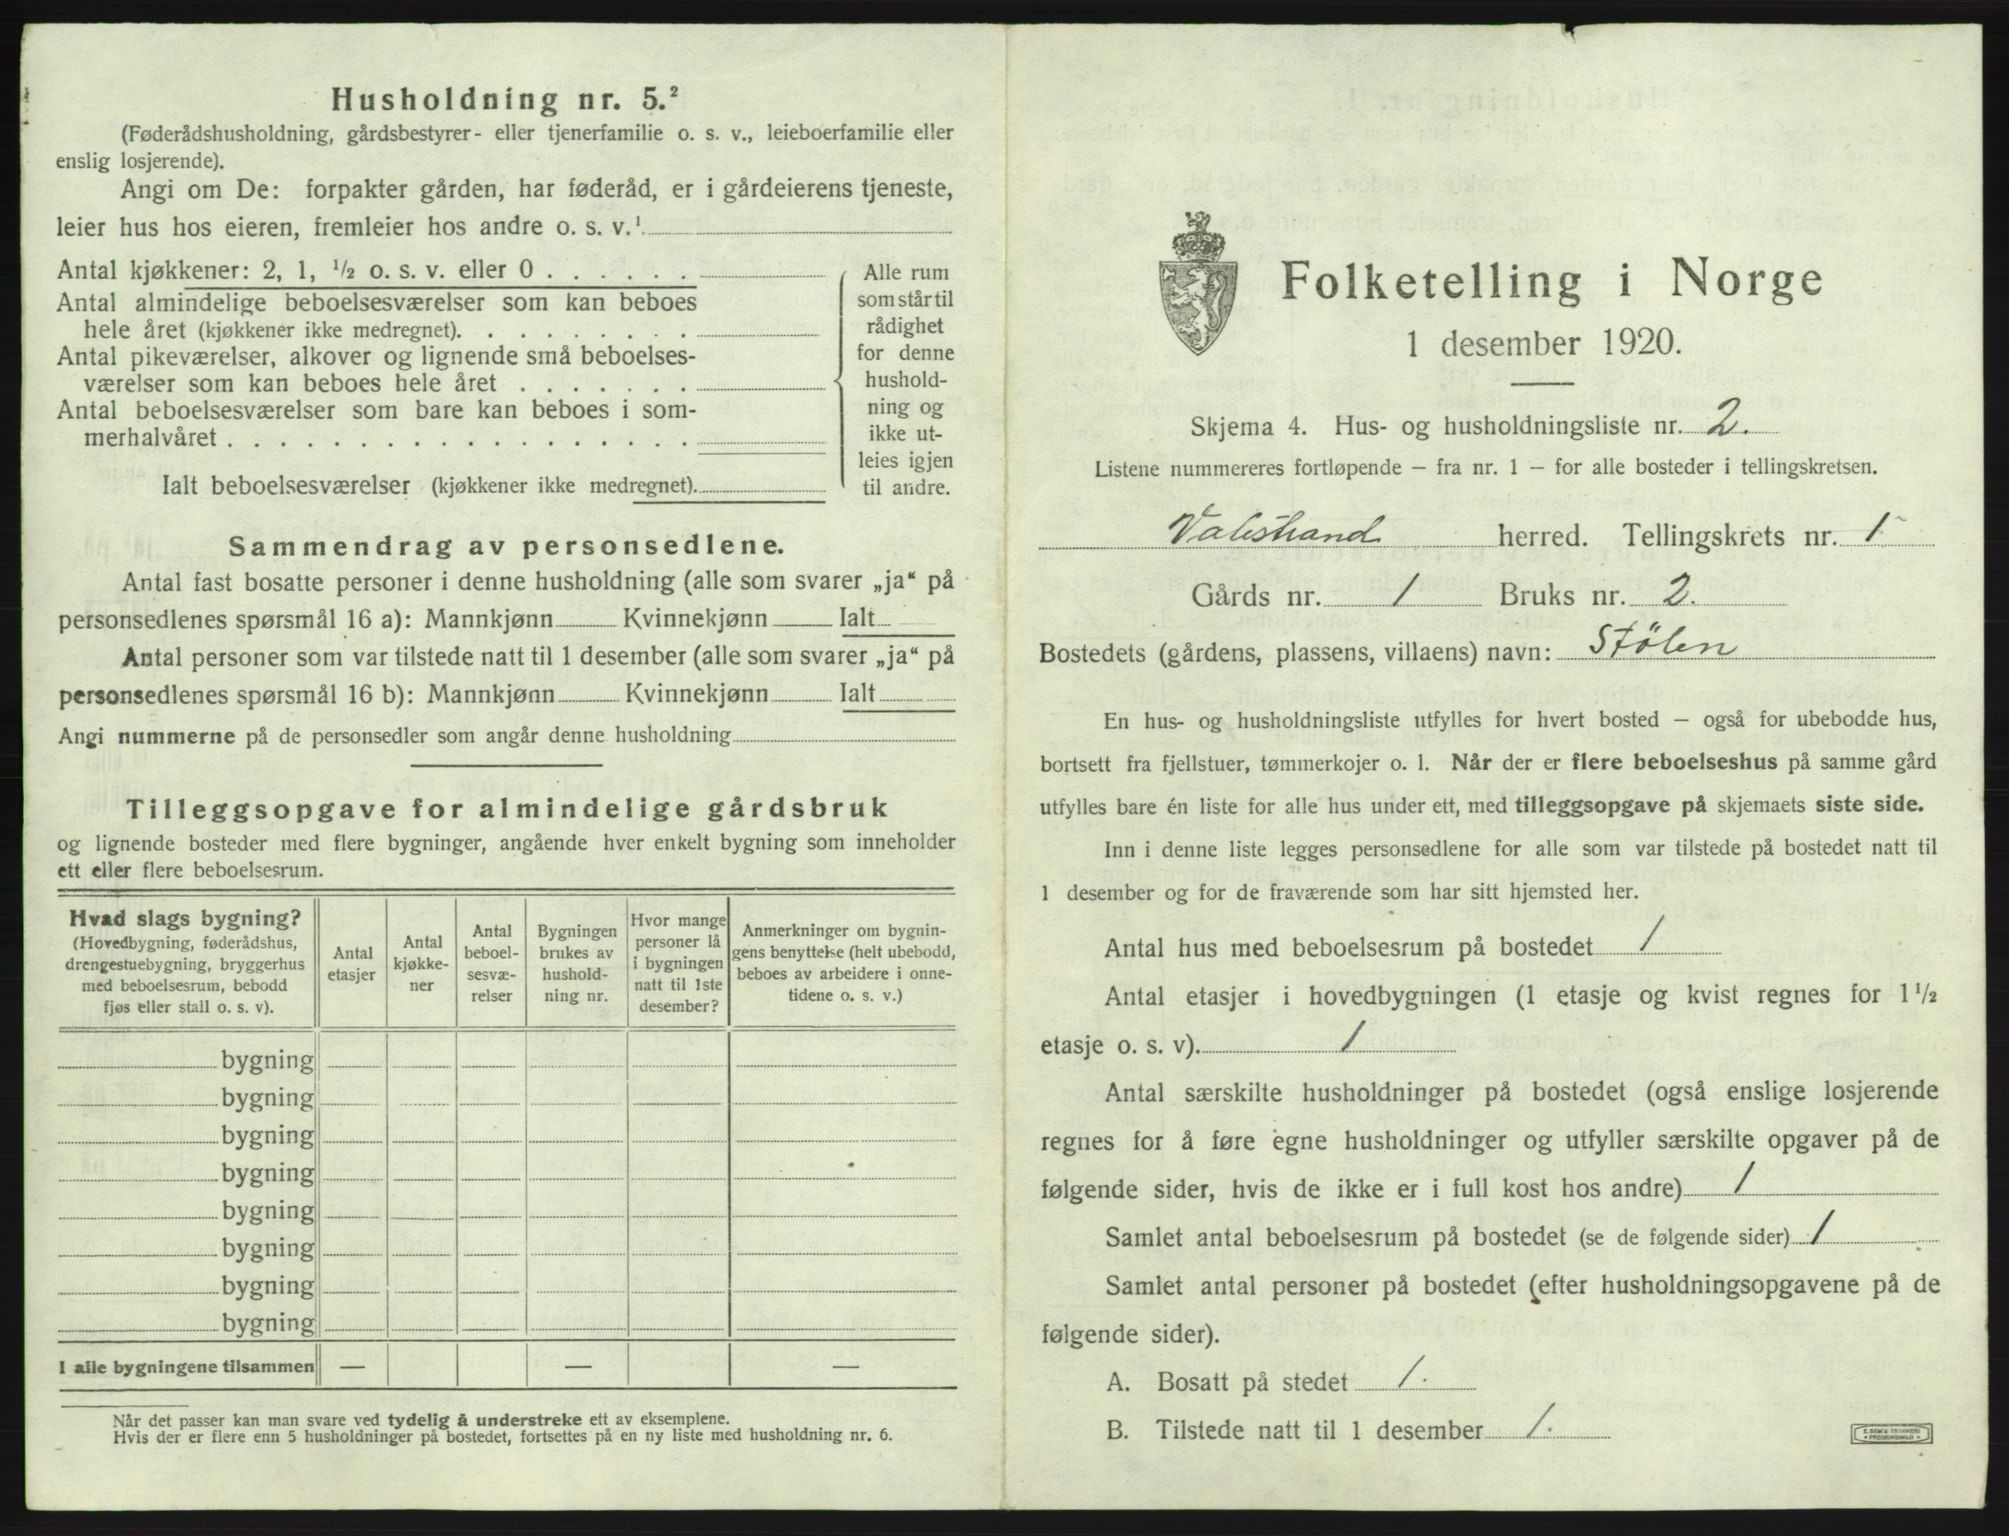 Husholdning nr. 5.²
(Føderådshusholdning, gårdsbestyrer- eller tjenerfamilie o. s. v., leieboerfamilie eller
enslig losjerende).
Angi om De: forpakter gården, har føderåd, er i gårdeierens tjeneste,
leier hus hos eieren, fremleier hos andre o. s. v.¹
Antal kjøkkener: 2, 1, ½ o. s. v. eller 0 . . . . . .
Antal almindelige beboelsesværelser som kan beboes
hele året (kjøkkener ikke medregnet). . . . . . . . .
Antal pikeværelser, alkover og lignende små beboelses-
værelser som kan beboes hele året . . . . . . .
Antal beboelsesværelser som bare kan beboes i som-
merhalvåret . . . . . . . . . . . . . . . . . .
Ialt beboelsesværelser (kjøkkener ikke medregnet).
Alle rum
som står til
rådighet
for denne
hushold-
ning og
ikke ut-
leies igjen
til andre.
Sammendrag av personsedlene.
Antal fast bosatte personer i denne husholdning (alle som svarer „ja“ på
personsedlenes spørsmål 16 a): Mannkjønn Kvinnekjønn Ialt
Antal personer som var tilstede natt til 1 desember (alle som svarer „ja“ på
personsedlenes spørsmål 16 b): Mannkjønn Kvinnekjønn Ialt
Angi nummerne på de personsedler som angår denne husholdning
Tilleggsopgave for almindelige gårdsbruk
og lignende bosteder med flere bygninger, angående hver enkelt bygning som inneholder
ett eller flere beboelsesrum.
Hvad slags bygning?
(Hovedbygning, føderådshus,
drengestuebygning, bryggerhus
med beboelsesrum, bebodd
fjøs eller stall o. s. v).
Antal
etasjer
Antal
kjøkke-
ner
Antal
beboel-
sesvæ-
relser
Bygningen
brukes av
hushold-
ning nr.
Hvor mange
personer lå
i bygningen
natt til 1ste
desember?
Anmerkninger om bygnin-
gens benyttelse (helt ubebodd,
beboes av arbeidere i onne-
tidene o. s. v.)
bygning
bygning
bygning
bygning
bygning
bygning
bygning
bygning
I alle bygningene tilsammen — — —
Når det passer kan man svare ved tydelig å understreke ett av eksemplene.
Hvis der er flere enn 5 husholdninger på bostedet, fortsettes på en ny liste med husholdning nr. 6.
Folketelling i Norge
1 desember 1920.
Skjema 4. Hus- og husholdningsliste nr. 2.
Listene nummereres fortløpende — fra nr. 1 — for alle bosteder i tellingskretsen.
Valestrand herred. Tellingskrets nr. 1
Gårds nr. 1 Bruks nr. 2.
Bostedets (gårdens, plassens, villaens) navn: Stölen
En hus- og husholdningsliste utfylles for hvert bosted — også for ubebodde hus,
bortsett fra fjellstuer, tømmerkojer o. l. Når der er flere beboelseshus på samme gård
utfylles bare én liste for alle hus under ett, med tilleggsopgave på skjemaets siste side.
Inn i denne liste legges personsedlene for alle som var tilstede på bostedet natt til
1 desember og for de fraværende som har sitt hjemsted her.
Antal hus med beboelsesrum på bostedet 1
Antal etasjer i hovedbygningen (1 etasje og kvist regnes for 1½
etasje o. s. v). 1
Antal særskilte husholdninger på bostedet (også enslige losjerende
regnes for å føre egne husholdninger og utfyller særskilte opgaver på de
følgende sider, hvis de ikke er i full kost hos andre) 1
Samlet antal beboelsesrum på bostedet (se de følgende sider) 1
Samlet antal personer på bostedet (efter husholdningsopgavene på de
følgende sider).
A. Bosatt på stedet 1.
B. Tilstede natt til 1 desember 1.